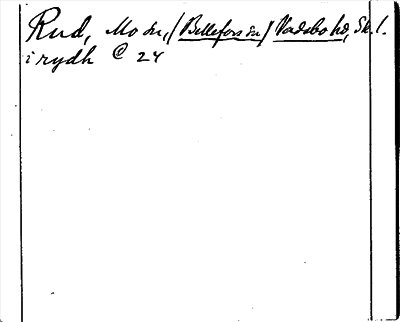 Rud, Mo sn, / Billefors sn / Vadsbo hd, Sk. l.
i rydh @ 24